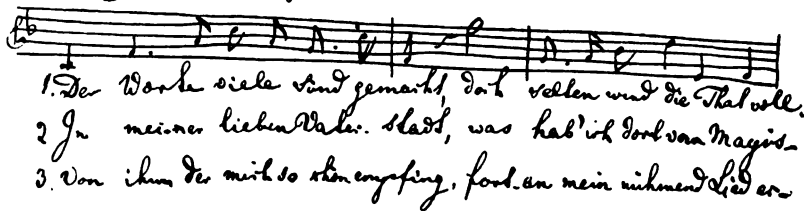 1. Der Worte viele sind gemacht, doch selten wird die That voll-
2 In meiner lieben Vater-stadt, was hab' ich dort vom Magis-
3. Von ihm der mich so schon empfing, fort-an mein rühmend Lied er-